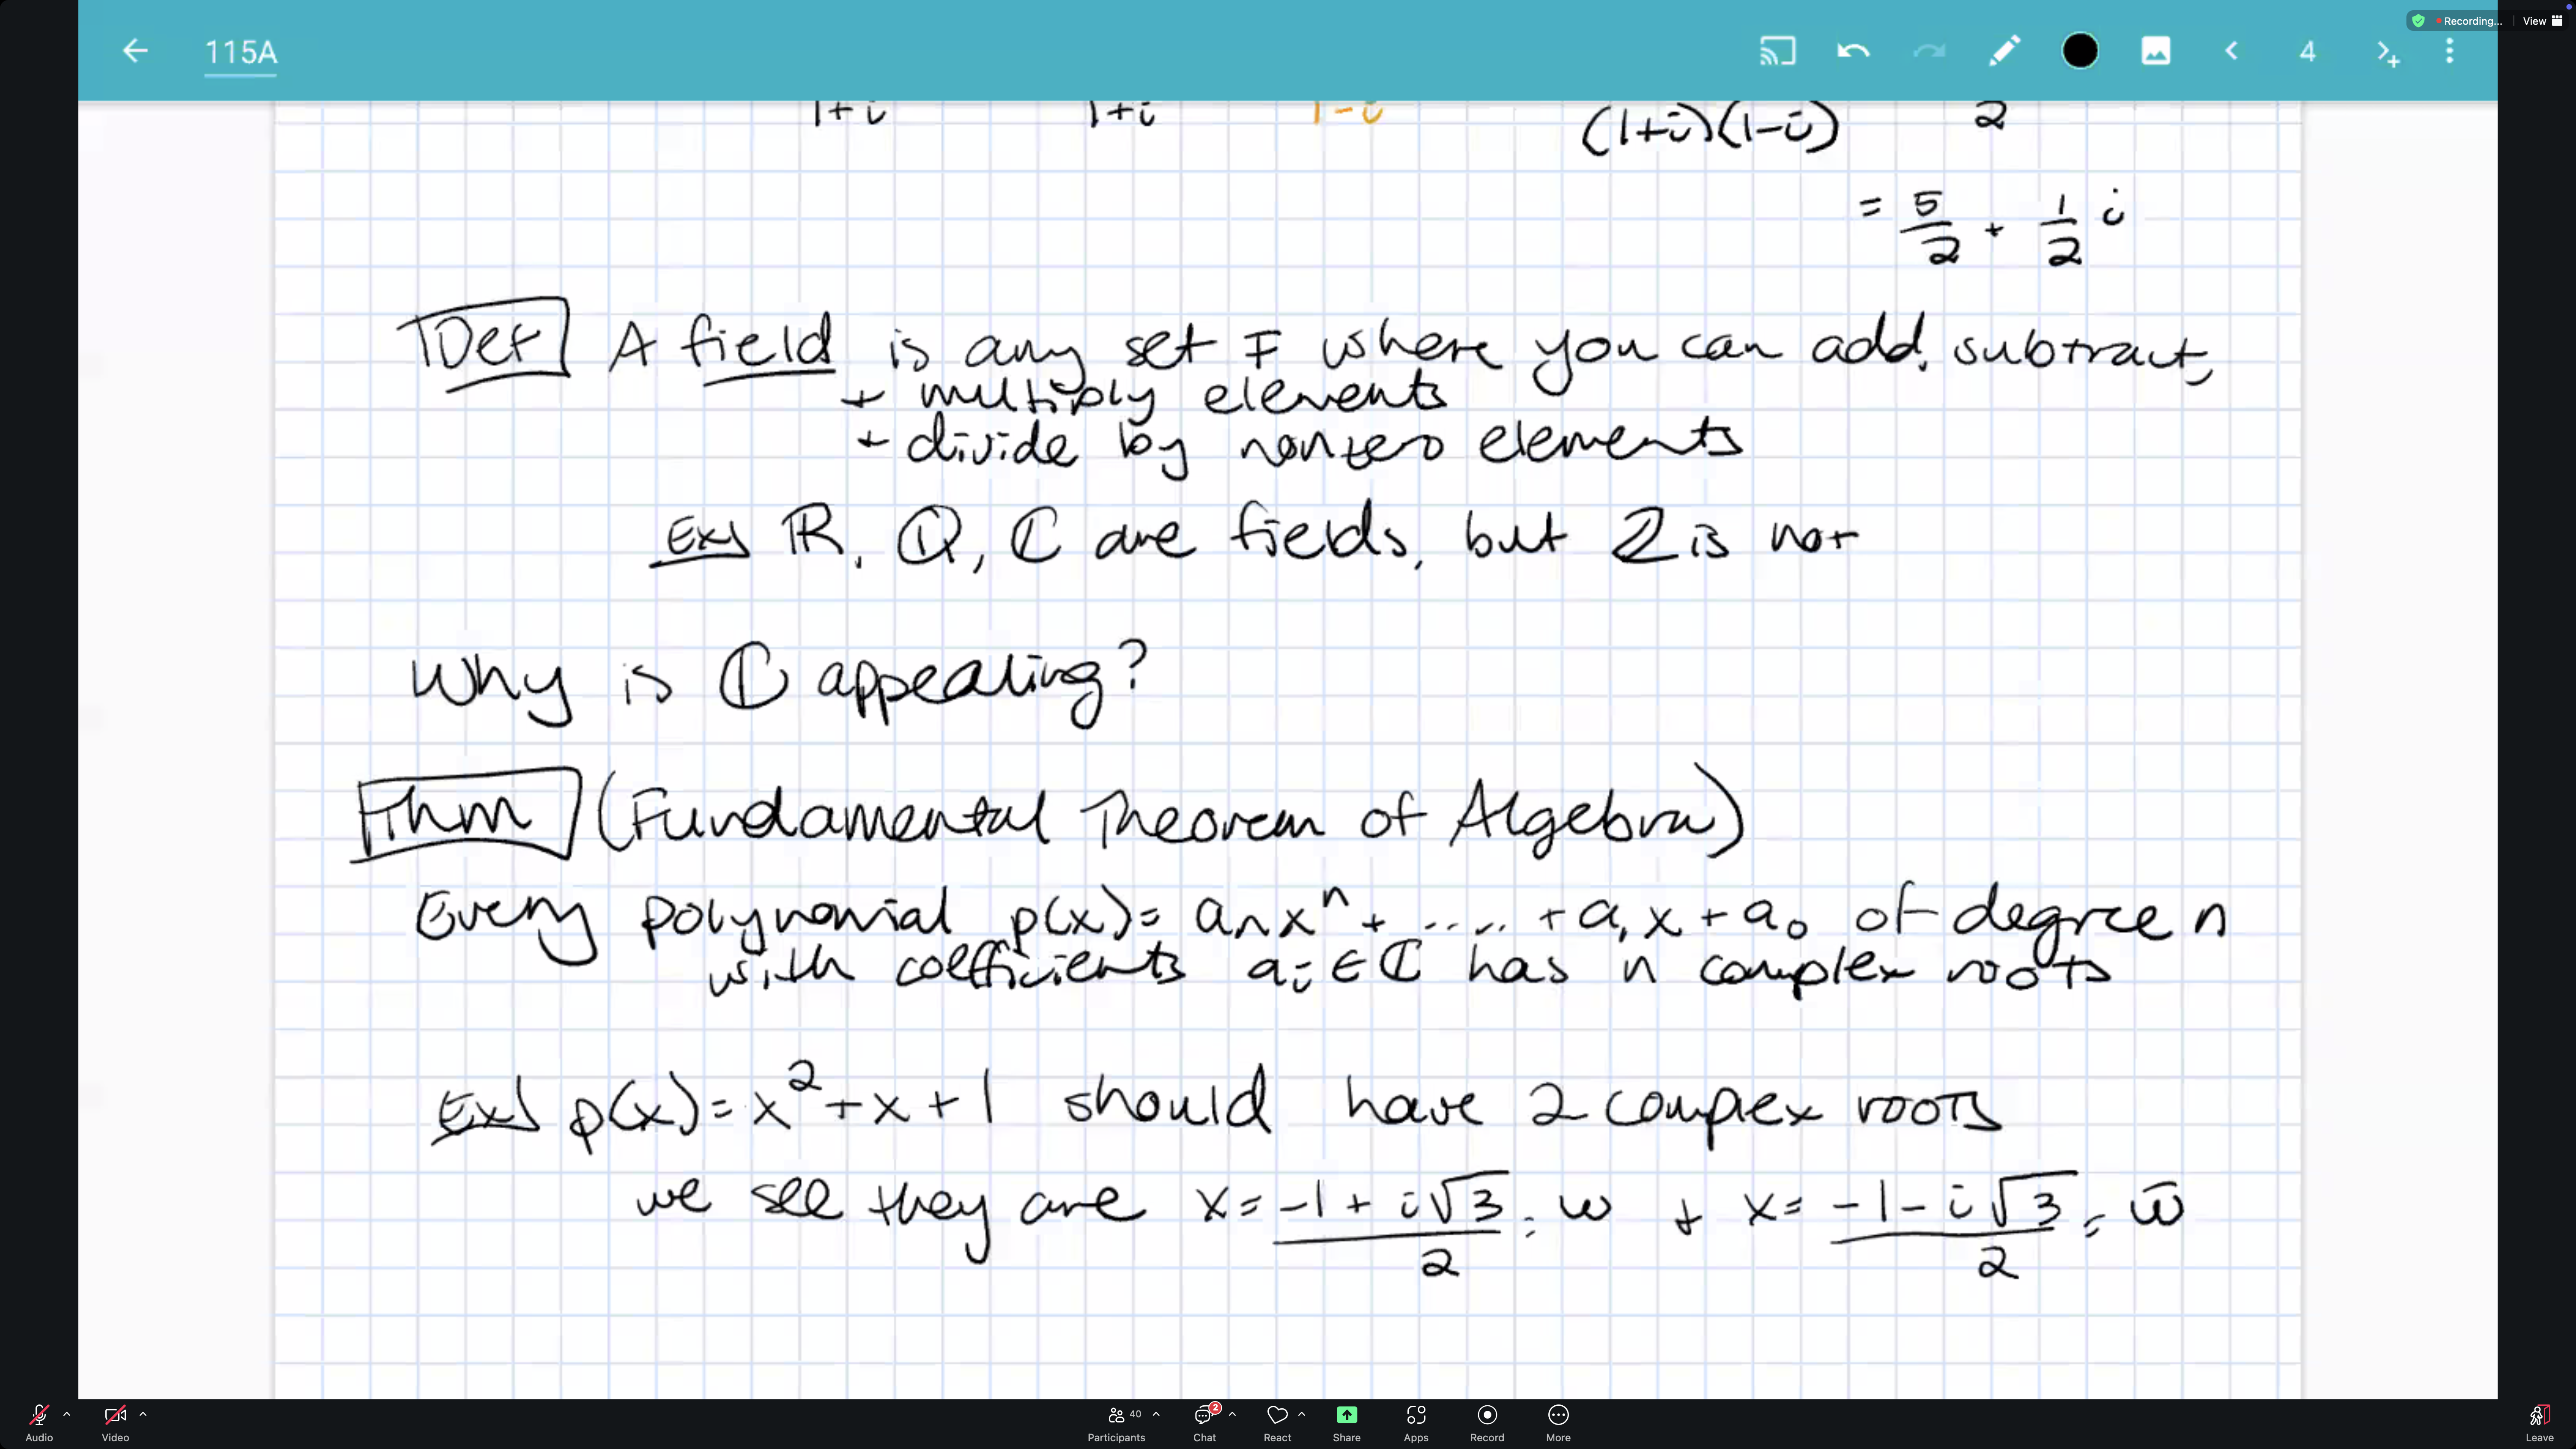 Recording...
View
115A
4
1+i 1+i 1-i (1+i)(1-i) 2
= 5/2 + 1/2 i
Def A field is any set F where you can add, subtract,
+ multiply elements
+ divide by nonzero elements
Ex) ℝ, ℚ, ℂ are fields, but ℤ is not
Why is ℂ appealing?
Thm (Fundamental Theorem of Algebra)
Every polynomial p(x) = aₙxⁿ + ..... + a₁x + a₀ of degree n
with coefficients aᵢ ∈ ℂ has n complex roots
Ex) p(x) = x² + x + 1 should have 2 complex roots
we see they are x = (-1 + i√3)/2 = w + x = (-1 - i√3)/2 = w̄
Audio
Video
Participants 40
Chat 2
React
Share
Apps
Record
More
Leave